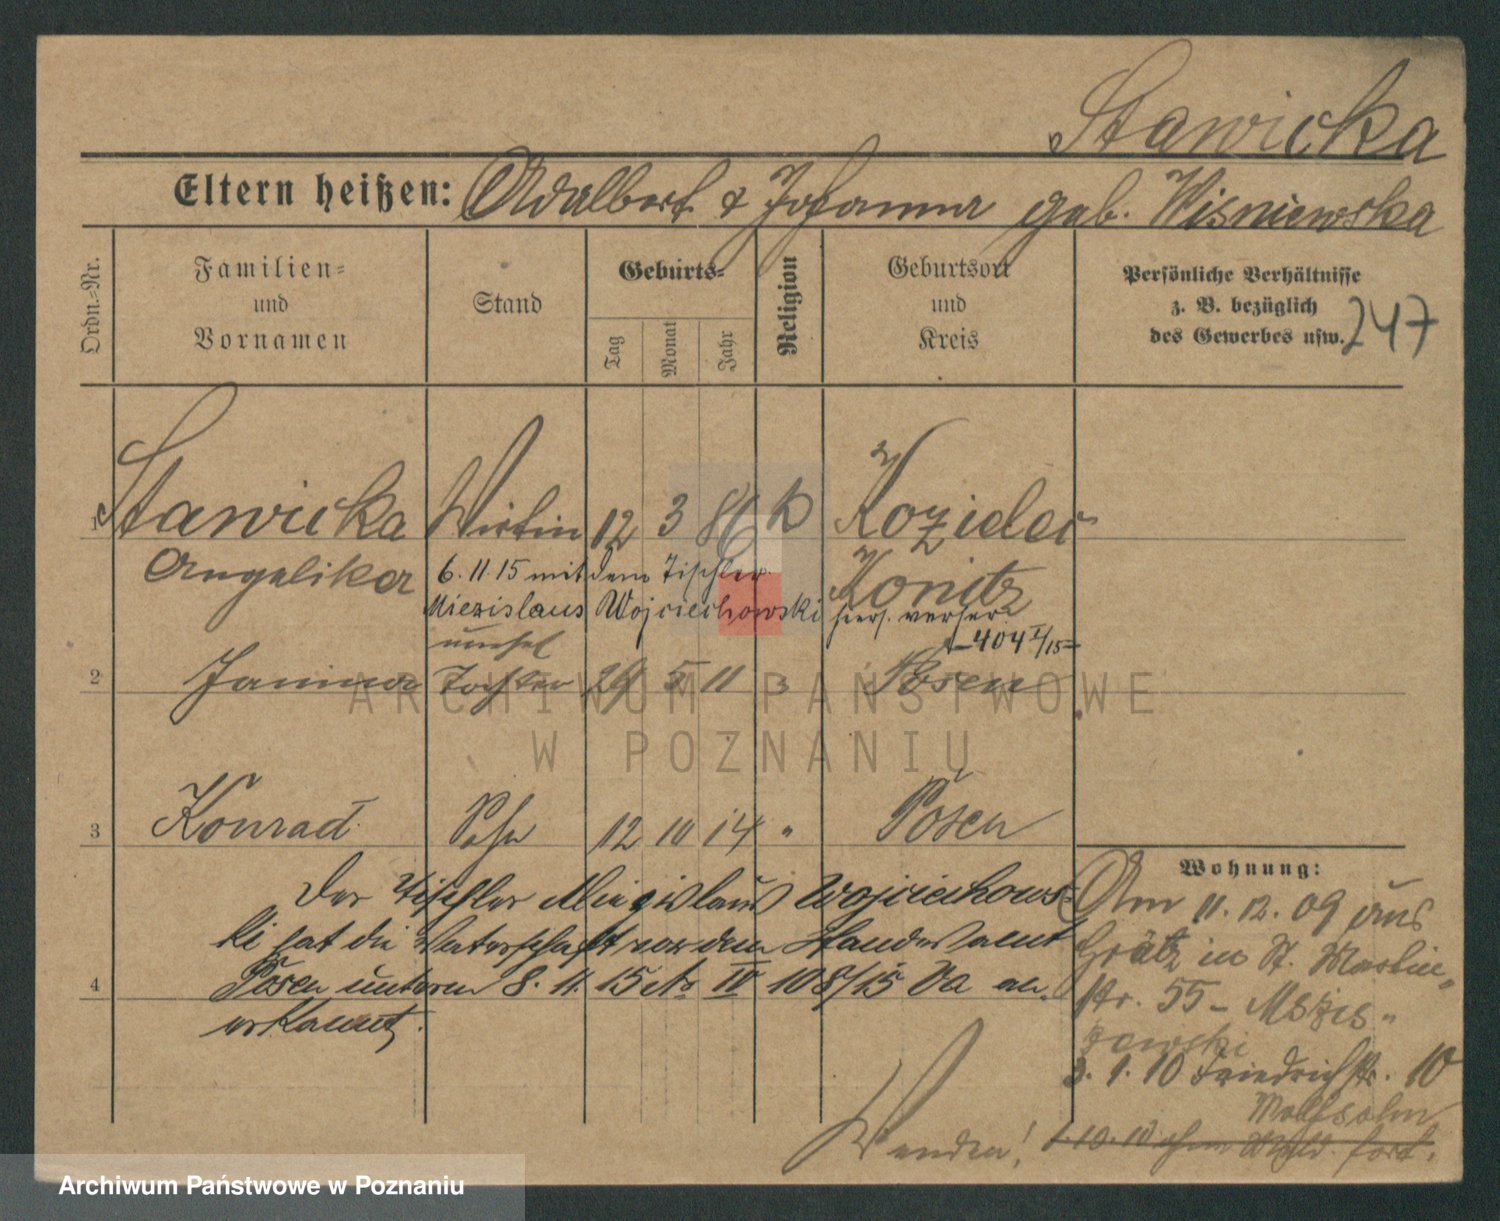 Stawicka
Eltern heißen: Adalbert & Johanna geb. Wisniewska
Ordn.-Nr.
Familien-
und
Vornamen
Stand
Geburts-
Tag
Monat
Jahr
Religion
Geburtsort
und
Kreis
Persönliche Verhältnisse
z. B. bezüglich
des Gewerbes usw.
247
1 Stawicka Wirtin 12 3 86 k
Angelika Konitz
6. 11. 15 mit dem Tischler
Miezislaus Wojciechowski hiers. verheir.
404 I/15
unehel
2 Janina Tochter 29 5 11 Posen
3 Konrad Sohn 12 10 14 " Posen
Der Tischler Miezislaus Wojciechows-
ki hat die Vaterschaft vor dem Standesamt
4 Posen unterm 8. 11. 15 No IV 108/15 an-
erkannt.
Wohnung:
Am 11. 12. 09 aus
Grätz in St. Martin-
str. 55 -
3. 1. 10 Friedrichstr. 10
Wolfsohn
1. 10. 10 ohne Mld. fort.
Wenden!
ARCHIWUM PAŃSTWOWE
W POZNANIU
Archiwum Państwowe w Poznaniu